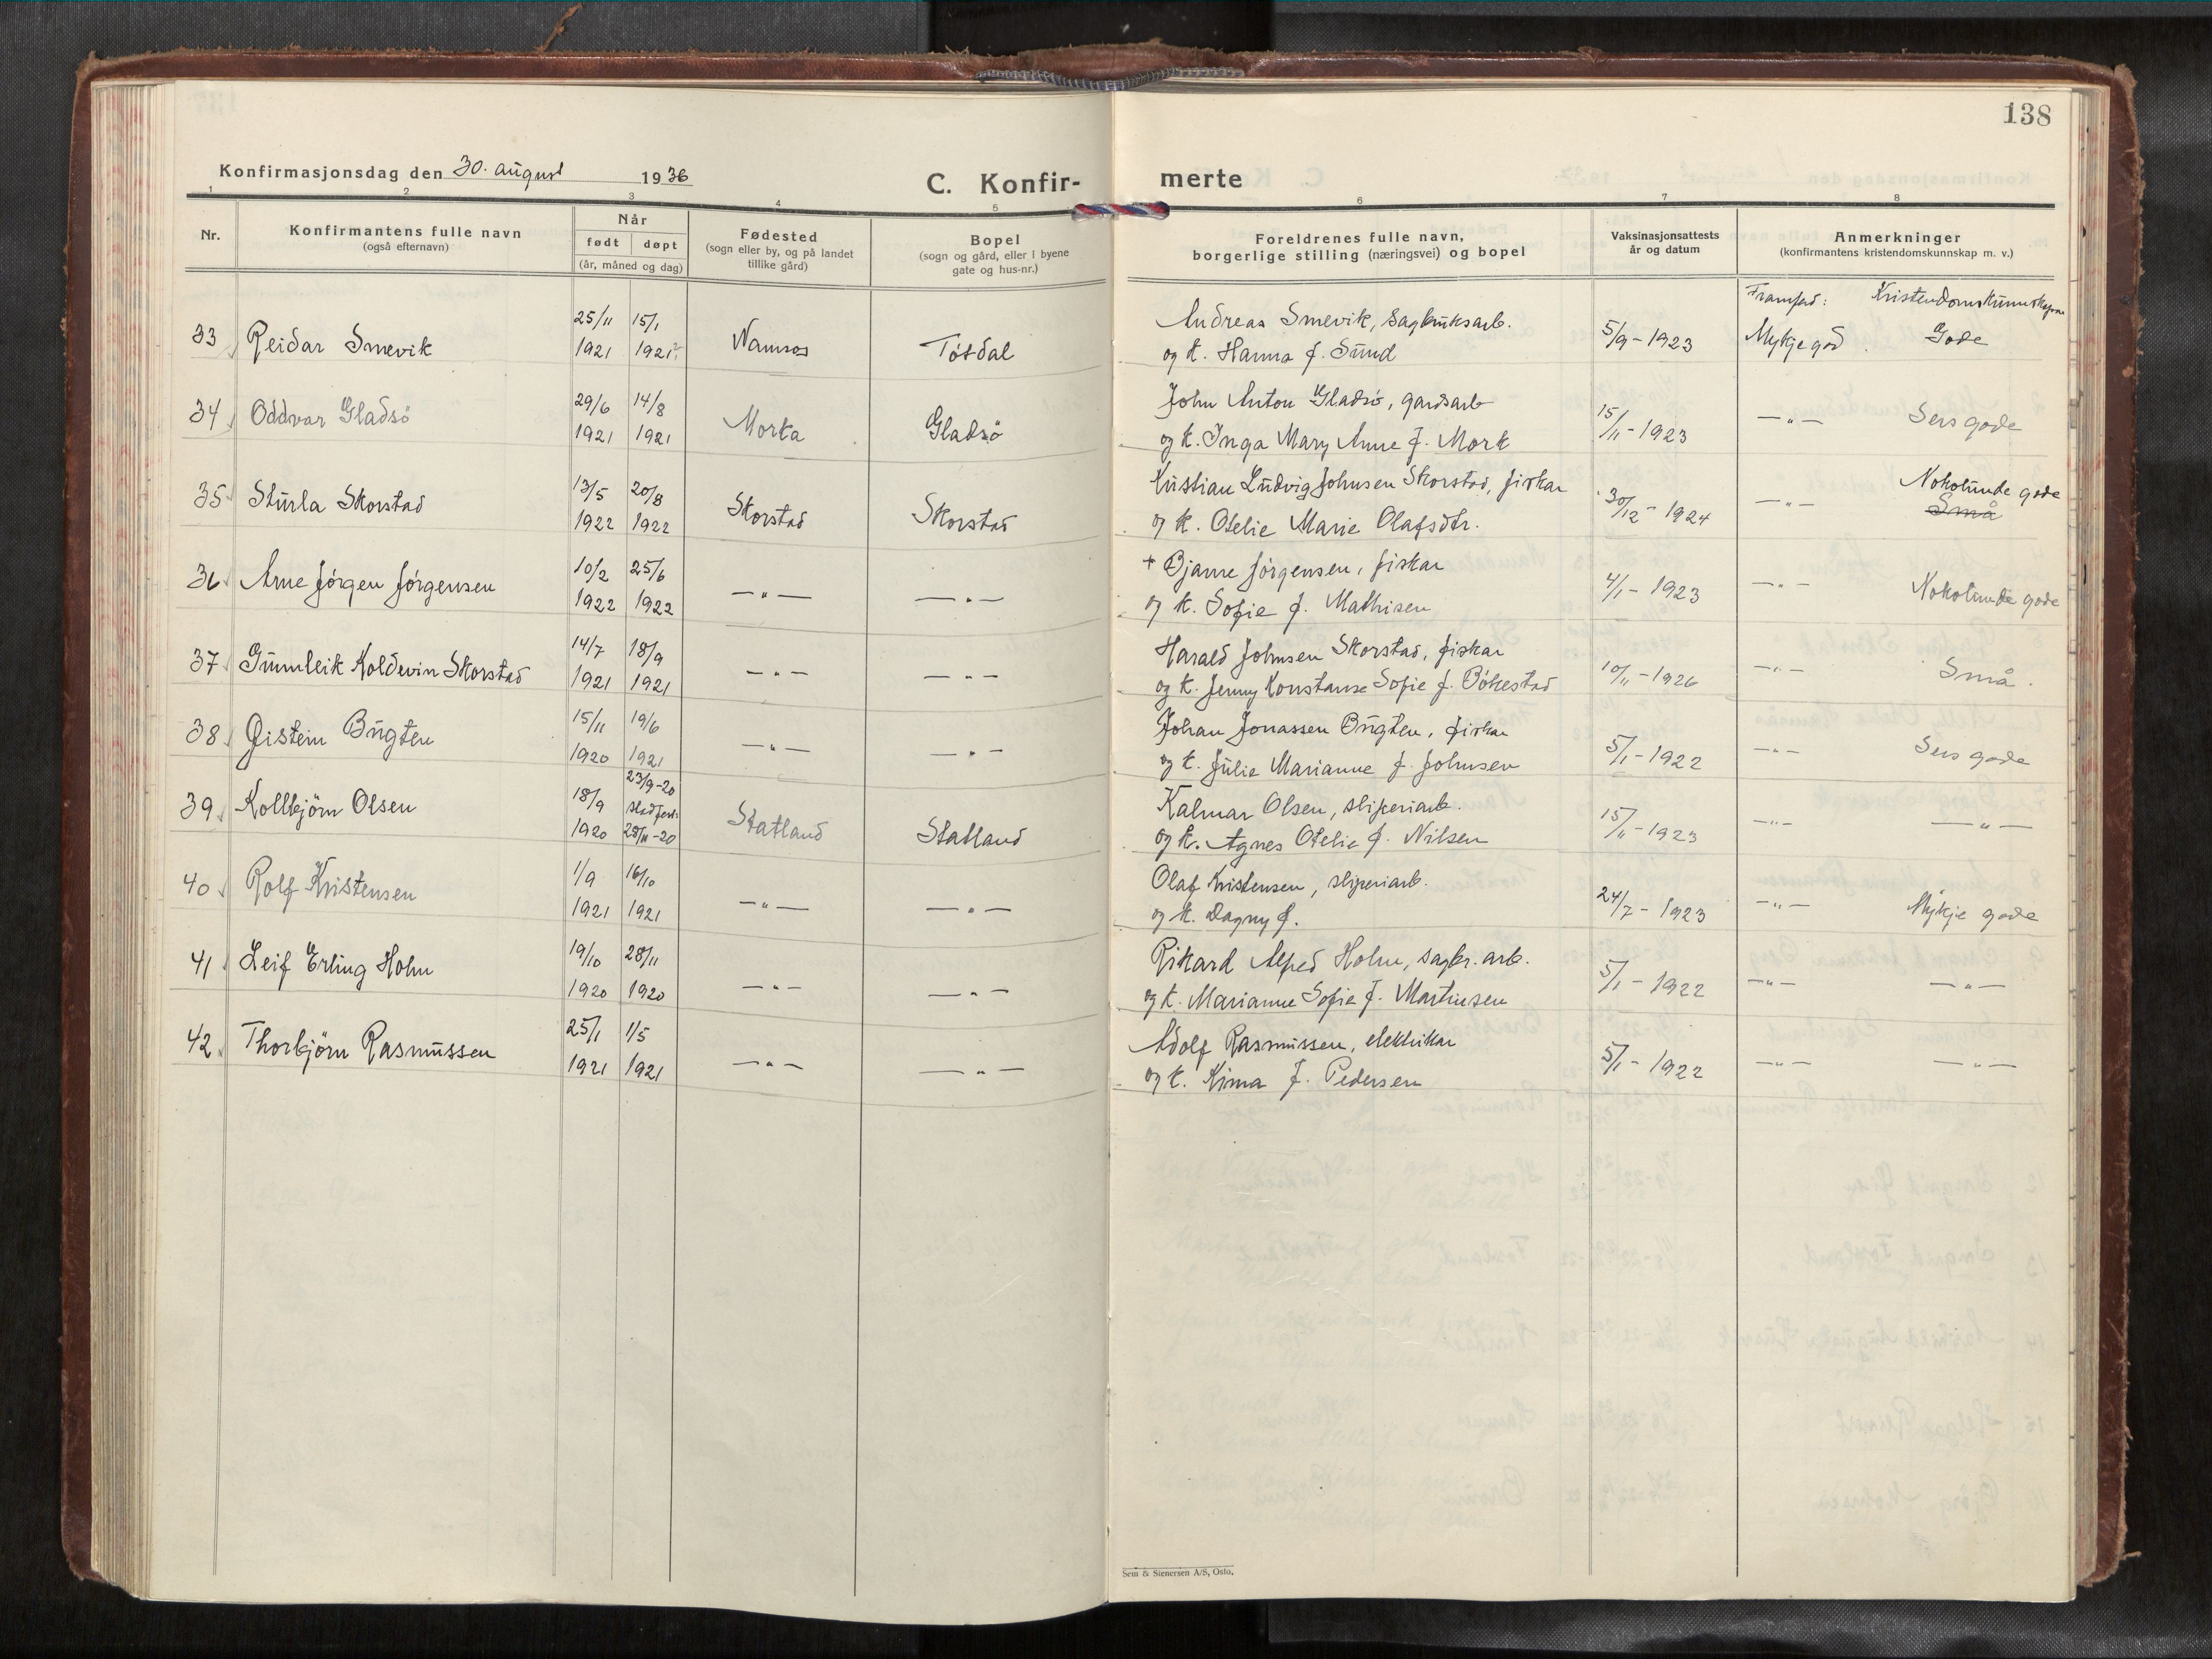 138
Konfirmasjonsdag den 30. august 1936
C. Konfir- merte
1 2 3 4 5 6 7 8
Nr.
Konfirmantens fulle navn
(også efternavn)
Når
født døpt
(år, måned og dag)
Fødested
(sogn eller by, og på landet
tillike gård)
Bopel
(sogn og gård, eller i byene
gate og hus-nr.)
Foreldrenes fulle navn,
borgerlige stilling (næringsvei) og bopel
Vaksinasjonsattests
år og datum
Anmerkninger
(konfirmantens kristendomskunnskap m. v.)
Framferd: Kristendomskunnskapen
25/11 15/1 Andreas Smevik, sagbruksarb.
33 Reidar Smevik 1921 1922 Namsos Tøtdal og k. Hanna f. Sund 5/9-1923 Mykje god Gode
29/6 14/8 John Anton Gladsø, gardsarb
34 Oddvar Gladsö 1921 1921 Morka Gladsö og k. Inga Mary Anne f. Mork 15/11-1923 —"— Sers gode
13/5 20/8 Kristian Ludvig Johnsen Skorstad, fiskar Nokolunde gode
35 Sturla Skorstad 1922 1922 Skorstad Skorstad og k. Otelie Marie Olafsdtr. 30/12-1924 —"— Små
10/2 25/6 + Bjarne Jörgensen, fiskar
36 Arne Jörgen Jörgensen 1922 1922 —"— —"— og k. Sofie f. Mathisen 4/1-1923 —"— Nokolunde gode
14/7 18/9 Harald Johnsen Skorstad, fiskar
37 Gunnleik Koldevin Skorstad 1921 1921 —"— —"— og k. Jenny Konstanse Sofie f. Bökestad 10/11-1926 —"— Små.
15/11 19/6 Johan Jonassen Bugten, fiskar
38 Øistein Bugten 1920 1921 —"— —"— og k. Julie Marianne f. Johnsen 5/1-1922 —"— Sers gode
23/9-20
18/9 stadfest: Kalmar Olsen, sliperiarb.
39 Kollbjörn Olsen 1920 28/11-20 Statland Statland og k. Agnes Otelie f. Nilsen 15/11-1923 —"— —"—
1/9 16/10 Olaf Kristensen, sliperiarb.
40 Rolf Kristensen 1921 1921 —"— —"— og k. Dagny f. 24/7-1923 —"— Mykje gode
19/10 28/11 Rikard Alfred Holm, sagbr. arb.
41 Leif Erling Holm 1920 1920 —"— —"— og k. Marianne Sofie f. Martinsen 5/1-1922 —"— —"—
25/1 1/5 Adolf Rasmussen, elektrikar
42 Thorbjörn Rasmussen 1921 1921 —"— —"— og k. Kima f. Pedersen 5/1-1922 —"— —"—
Sem & Stenersen A/S, Oslo.